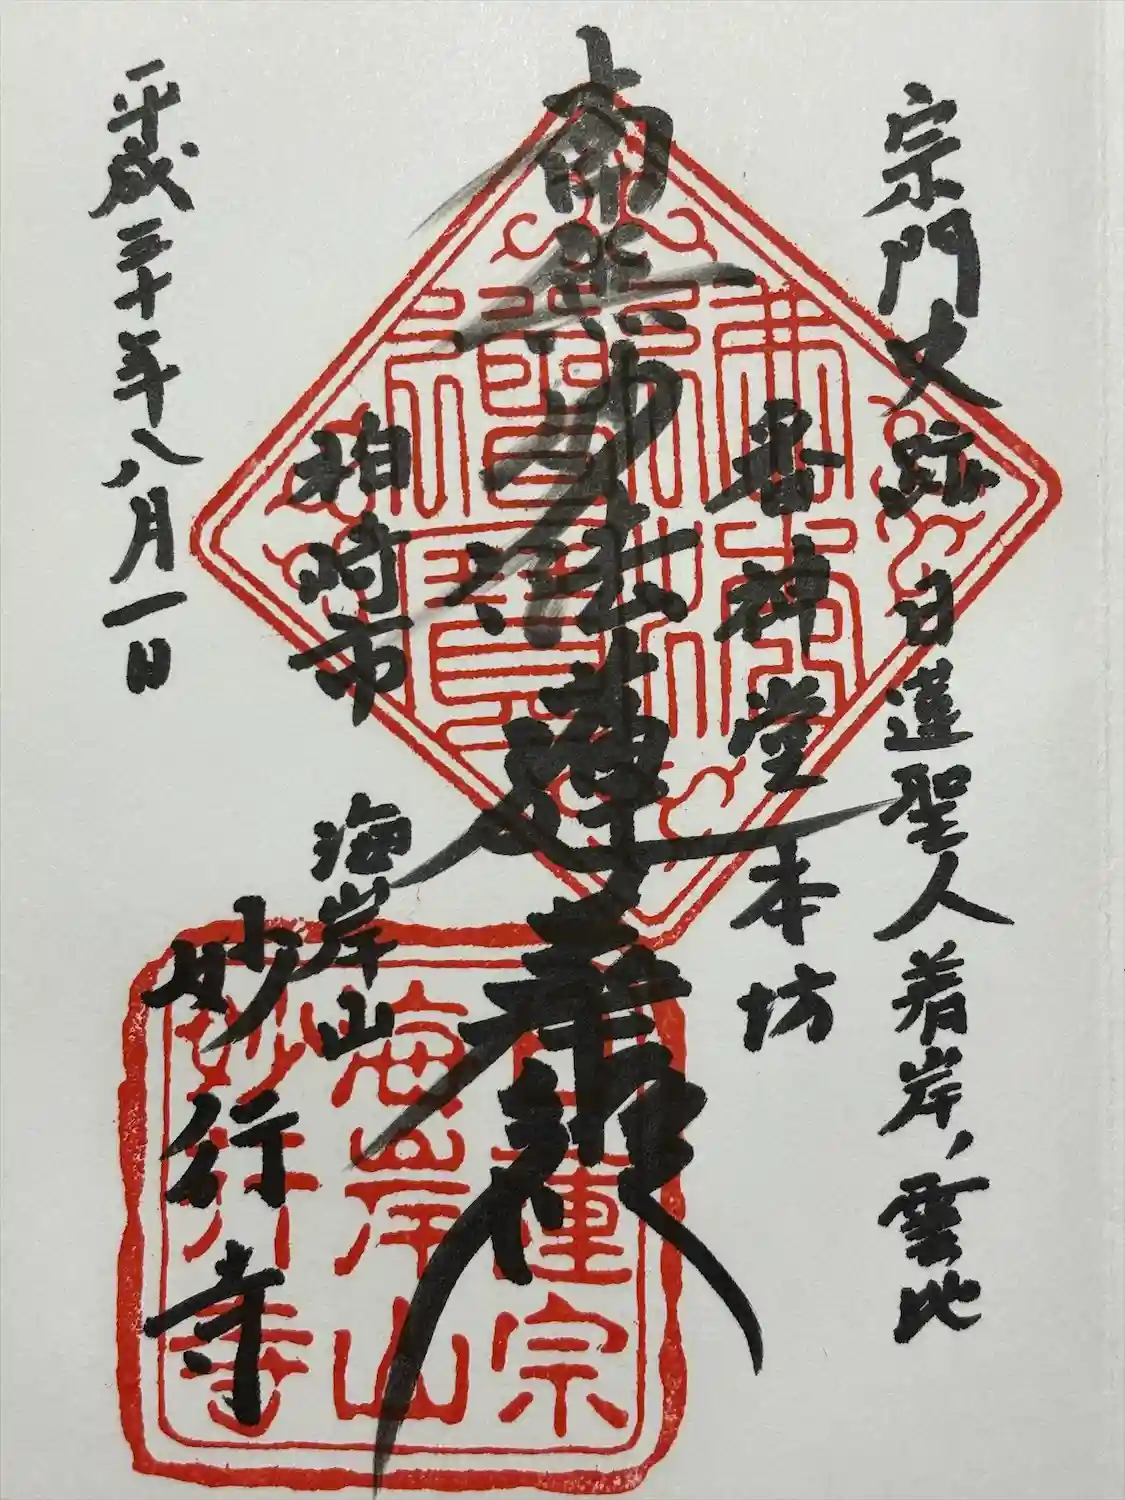 宗門史跡日蓮聖人着岸、霊地
番神堂本坊
南無妙法蓮華経
柏崎市
海岸山
妙行寺
平成三十年八月一日
日蓮宗
海岸山
妙行寺